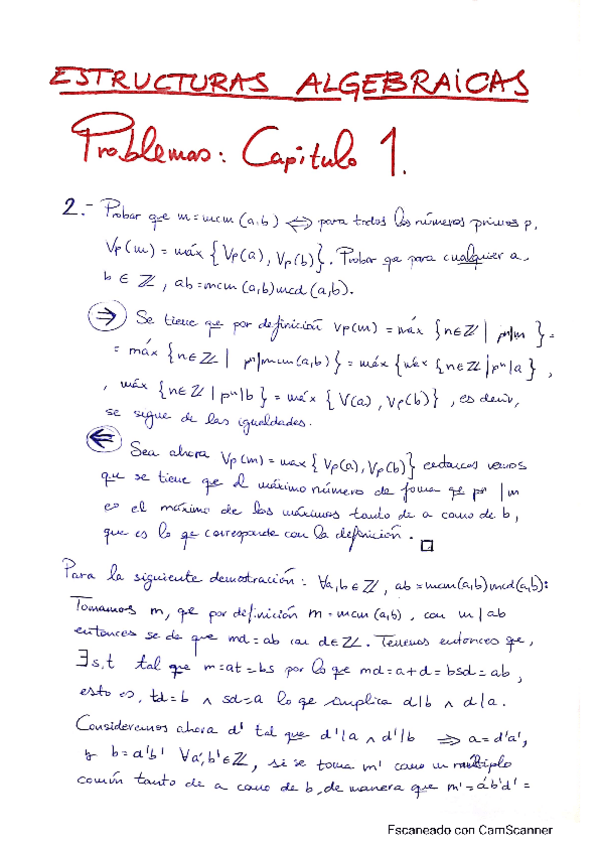 ESTRUCTURAS ALGEBRAICAS
Problemas: Capitulo 1.
2.- Probar que m = mcm (a,b) ⟺ para todos los números primos p,
Vp(m) = máx { Vp(a), Vp(b) }. Probar qe para cualquier a,
b ∈ ℤ, ab = mcm (a,b) mcd (a,b).
⇒ Se tiene que por definición vp(m) = máx { n∈ℤ | pⁿ|m } =
= máx { n∈ℤ | pⁿ|mcm(a,b) } = máx { máx { n∈ℤ | pⁿ|a } ,
, máx { n∈ℤ | pⁿ|b } = máx { V(a), Vp(b) } , es decir,
se sigue de las igualdades.
⇐ Sea ahora Vp(m) = max { Vp(a), Vp(b) } entonces vemos
que se tiene qe el máximo número de forma qe pⁿ |m
es el máximo de los máximos tanto de a como de b,
que es lo qe corresponde con la definición. □
Para la siguiente demostración: ∀a,b ∈ ℤ, ab = mcm(a,b) mcd(a,b):
Tomamos m, qe por definición m = mcm (a,b), con m | ab
entonces se da que md = ab con d∈ℤ. Tenemos entonces qe,
∃ s,t tal que m = at = bs por lo qe md = a+d = bsd = ab,
esto es, td = b ∧ sd = a lo qe implica d|b ∧ d|a.
Consideremos ahora d' tal que d'|a ∧ d'|b ⇒ a = d'a',
y b = d'b' ∀a',b'∈ℤ, si se toma m' como un múltiplo
común tanto de a como de b, de manera que m' = a'b'd' =
Escaneado con CamScanner